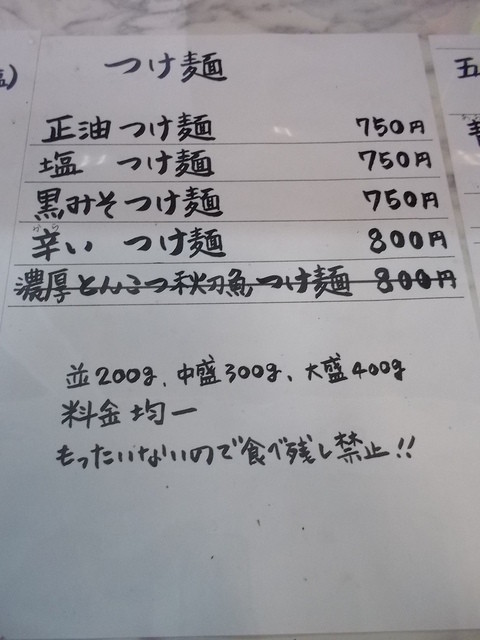 つけ麺
正油つけ麺 750円
塩 つけ麺 750円
黒みそつけ麺 750円
辛い つけ麺 800円
濃厚とんこつ秋刀魚つけ麺 800円
並200g、中盛300g、大盛400g
料金均一
もったいないので食べ残し禁止!!
五